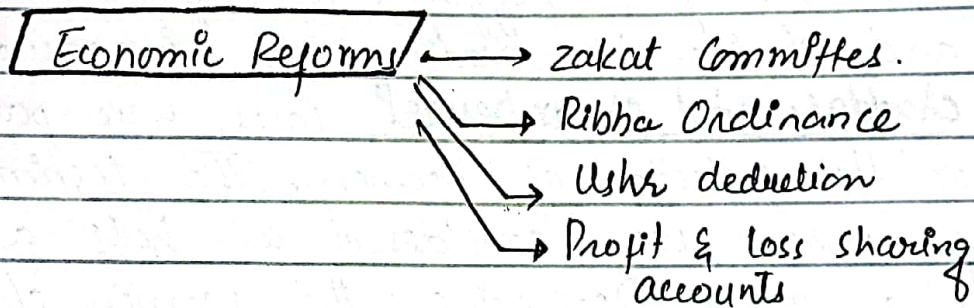 Economic Reforms
Zakat Committes.
Ribba Ordinance
Ushr deduction
Profit & loss sharing
accounts